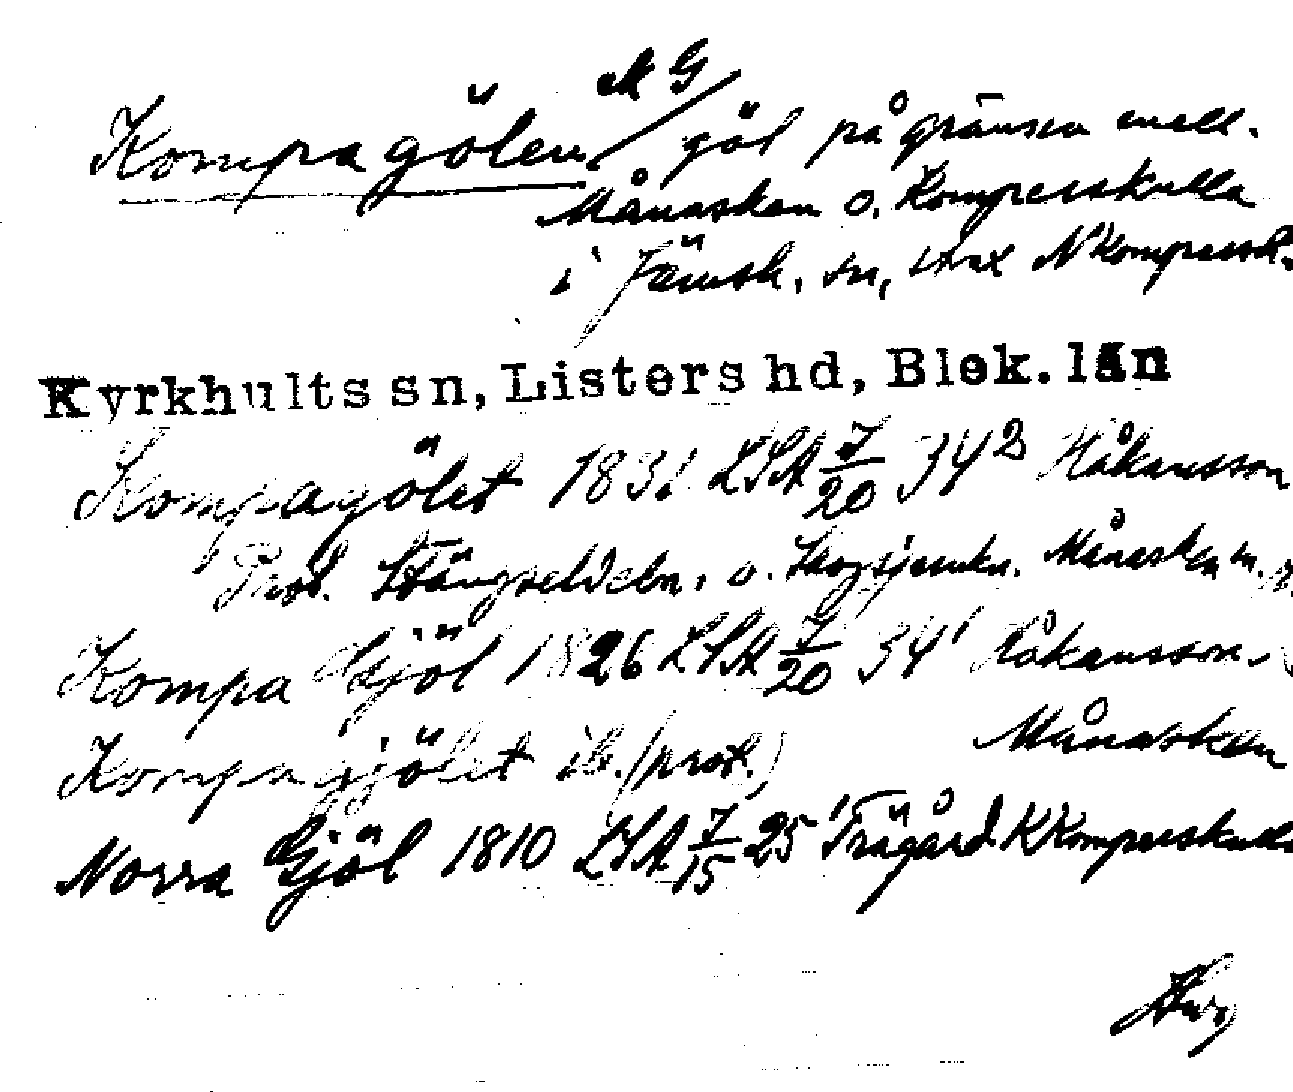 MG
Kompagölen / göl på gränsen mell.
Månasken o. Komperskulla
i Jämsh. sn, strax N Kompersk.
Kyrkhults sn, Listers hd, Blek. län
Kompagölet 1831 LSA 7/20 34² Håkansson
Prot. Stängseldeln. o. Skogsjämkn. Månasken m.
Kompa Gjöl 1826 LSA 7/20 34¹ Håkansson
Kompagjölet ib. (prot.) Månasken
Norra Gjöl 1810 LSA 7/15 25 Trägård Komperskulla